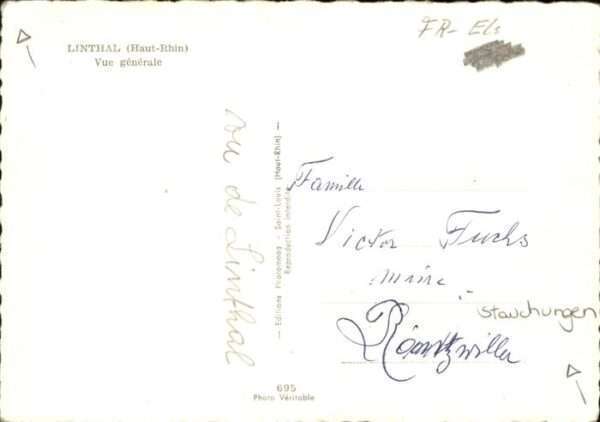 LINTHAL (Haut-Rhin)
Vue générale
FR- Els
vu de Linthal
— Editions Pharonnos - Saint-Louis (Haut-Rhin) —
Reproduction interdite
Famille
Victor Fuchs
Stauchungen
695
Photo Véritable